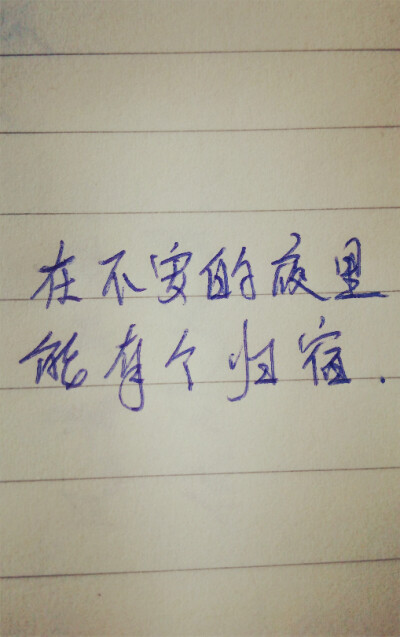 在不安的夜里
能有个归宿.